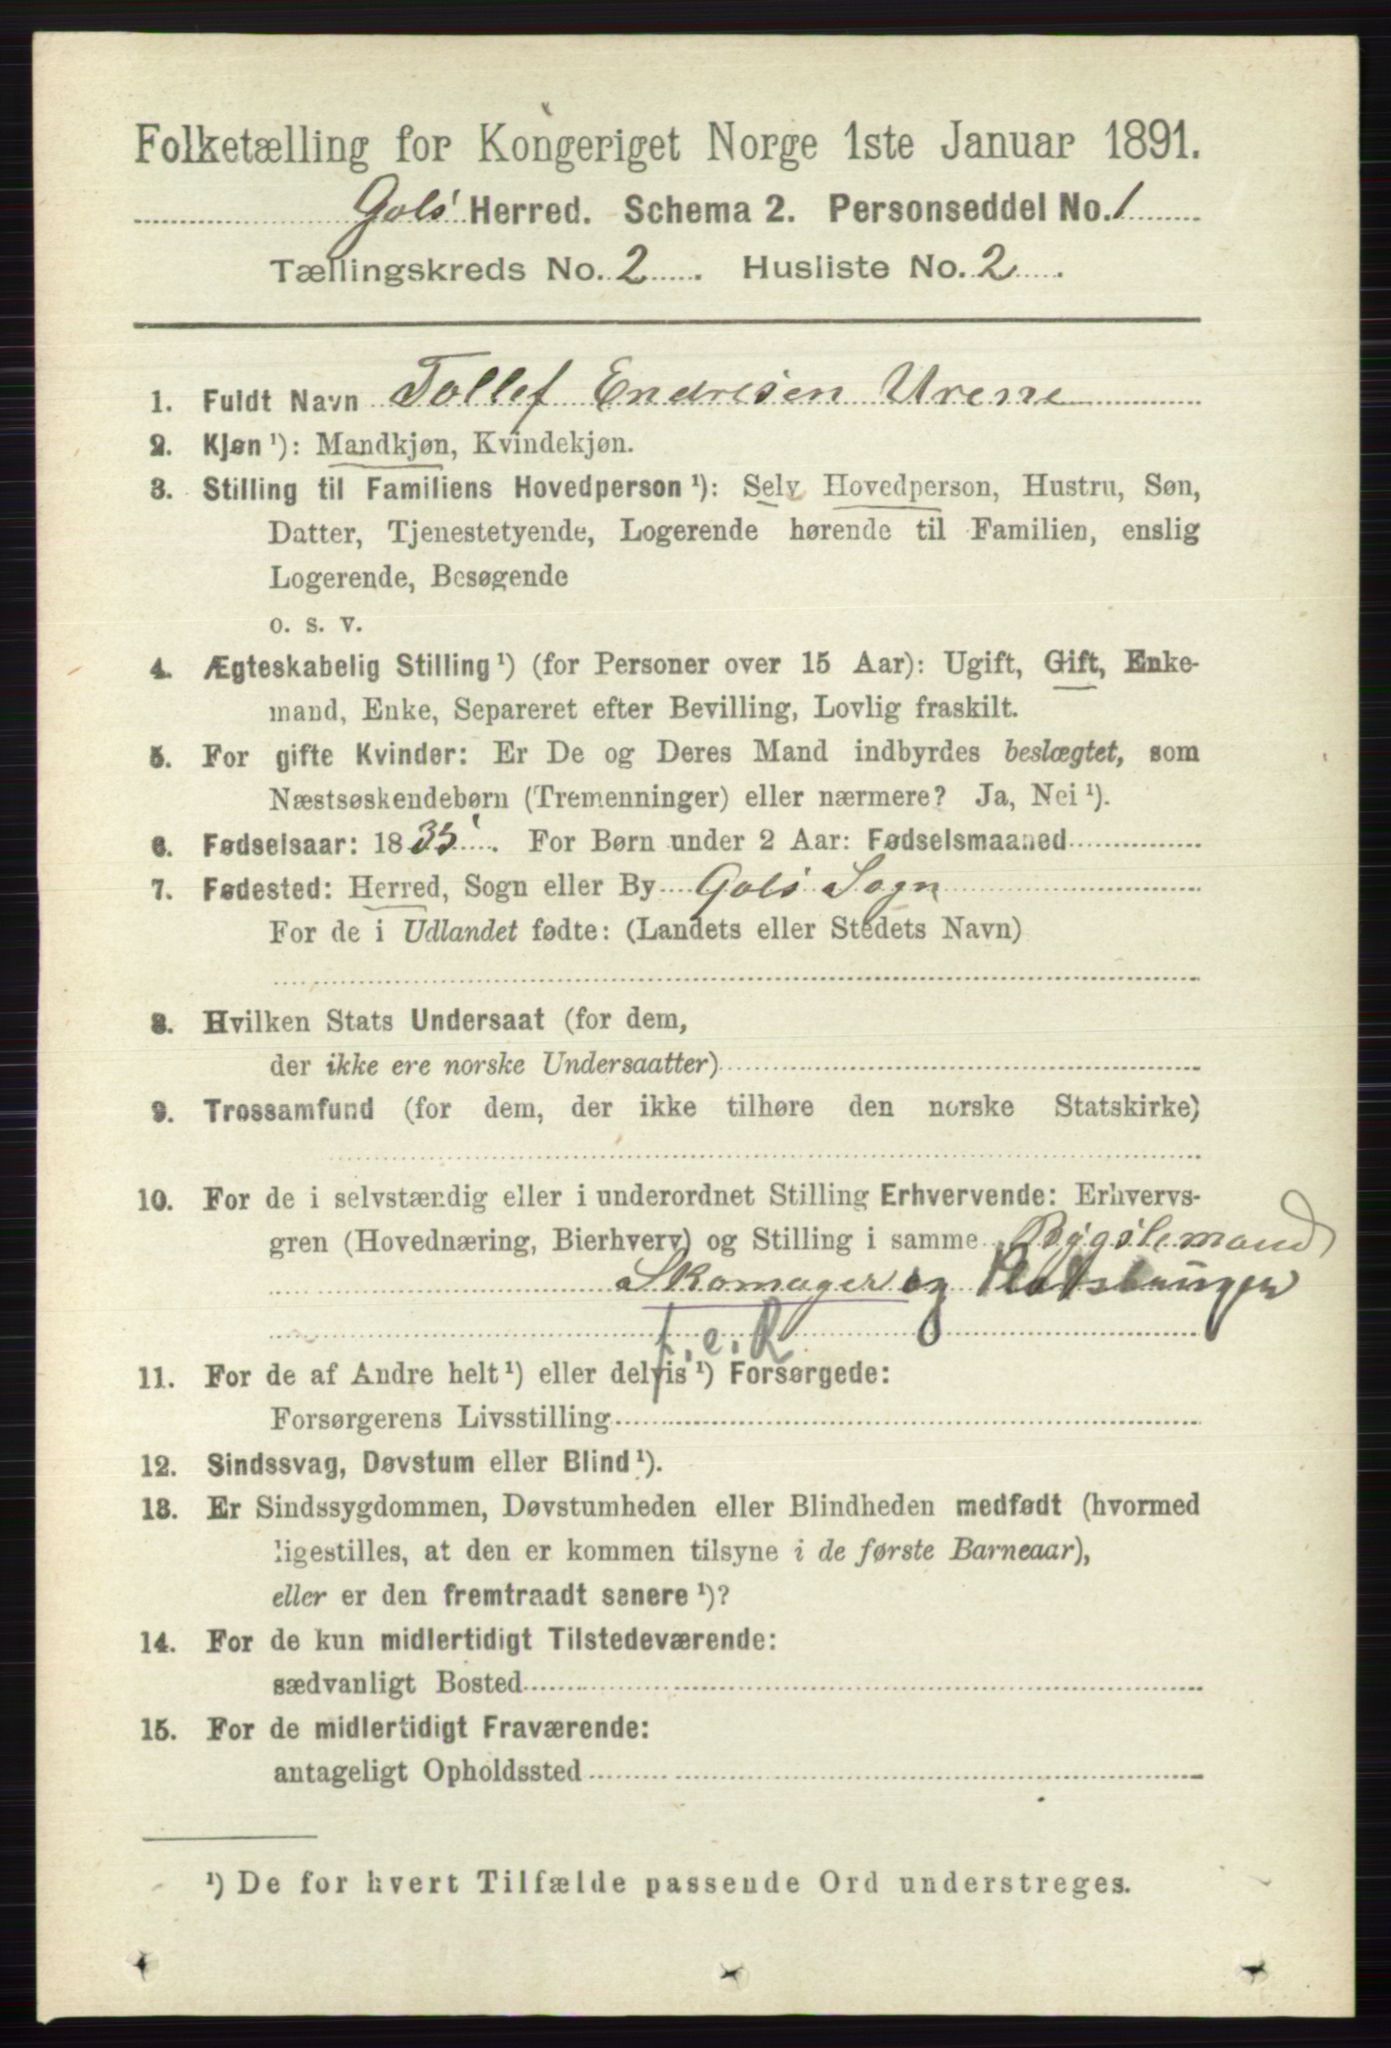 Folketælling for Kongeriget Norge 1ste Januar 1891.
Gols Herred. Schema 2. Personseddel No. 1
Tællingskreds No. 2. Husliste No. 2.
1. Fuldt Navn Tollef Endresen Urene
2. Kjøn ¹): Mandkjøn, Kvindekjøn.
3. Stilling til Familiens Hovedperson ¹): Selv Hovedperson, Hustru, Søn,
Datter, Tjenestetyende, Logerende hørende til Familien, enslig
Logerende, Besøgende
o. s. v.
4. Ægteskabelig Stilling ¹) (for Personer over 15 Aar): Ugift, Gift, Enke-
mand, Enke, Separeret efter Bevilling, Lovlig fraskilt.
5. For gifte Kvinder: Er De og Deres Mand indbyrdes beslægtet, som
Næstsøskendebørn (Tremenninger) eller nærmere? Ja, Nei ¹).
6. Fødselsaar: 1835. For Børn under 2 Aar: Fødselsmaaned
7. Fødested: Herred, Sogn eller By Gols Sogn
For de i Udlandet fødte: (Landets eller Stedets Navn)
8. Hvilken Stats Undersaat (for dem,
der ikke ere norske Undersaatter)
9. Trossamfund (for dem, der ikke tilhøre den norske Statskirke)
10. For de i selvstændig eller i underordnet Stilling Erhvervende: Erhvervs-
gren (Hovednæring, Bierhverv) og Stilling i samme Bygslemand
Skomager og
f.e.R
11. For de af Andre helt ¹) eller delvis ¹) Forsørgede:
Forsørgerens Livsstilling
12. Sindssvag, Døvstum eller Blind ¹).
13. Er Sindssygdommen, Døvstumheden eller Blindheden medfødt (hvormed
ligestilles, at den er kommen tilsyne i de første Barneaar),
eller er den fremtraadt senere ¹)?
14. For de kun midlertidigt Tilstedeværende:
sædvanligt Bosted
15. For de midlertidigt Fraværende:
antageligt Opholdssted
¹) De for hvert Tilfælde passende Ord understreges.